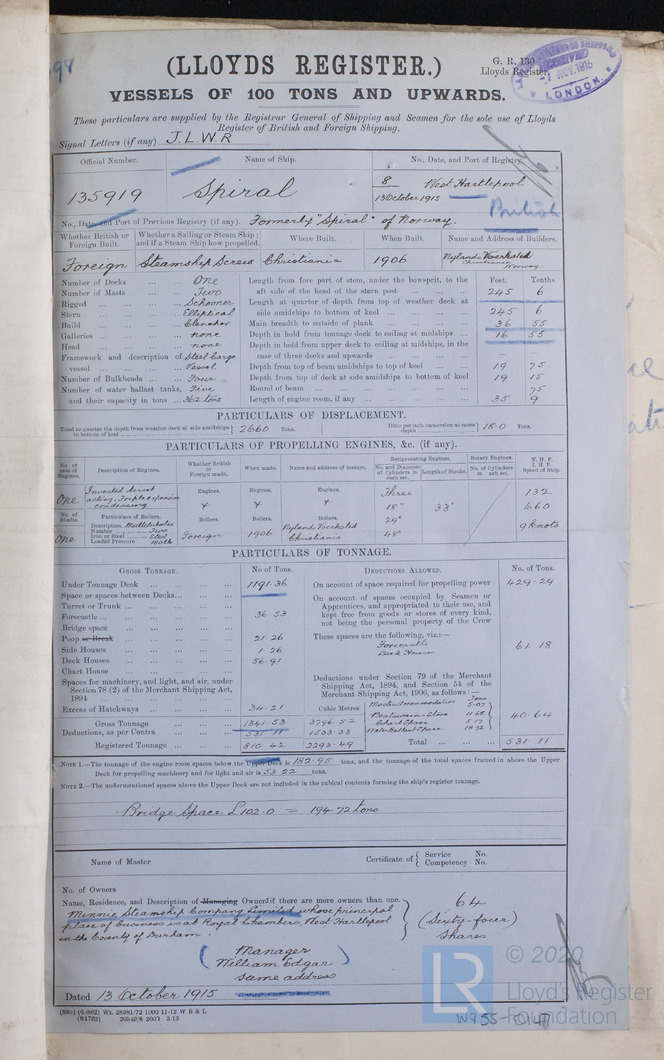 98
(LLOYDS REGISTER.)
G. R. 130
Lloyds Register
RECEIVED
NOV. 1915
LONDON.
VESSELS OF 100 TONS AND UPWARDS.
These particulars are supplied by the Registrar General of Shipping and Seamen for the sole use of Lloyds
Register of British and Foreign Shipping.
Signal Letters (if any) J.L.W.R
Official Number. Name of Ship. No., Date, and Port of Registry
135919 Spiral 8 West Hartlepool
13 October 1915
British
No., Date and Port of Previous Registry (if any). Formerly "Spiral" of Norway.
Whether British or Foreign Built. Whether a Sailing or Steam Ship: and if a Steam Ship how propelled. Where Built. When Built. Name and Address of Builders.
Foreign Steamship Screw Christiania 1906 Nylands Voerksted Christiania Norway
Number of Decks ... ... One
Number of Masts ... ... Two
Rigged ... ... ... Schooner
Stern ... ... ... Elliptical
Build ... ... ... Clencher
Galleries ... ... ... none
Head ... ... ... none
Framework and description of Steel Cargo
vessel ... ... ... Vessel
Number of Bulkheads ... Four
Number of water ballast tanks,
and their capacity in tons ... 362 tons
Feet. Tenths
Length from fore part of stem, under the bowsprit, to the
aft side of the head of the stern post ... 245 6
Length at quarter of depth from top of weather deck at
side amidships to bottom of keel ... 245 6
Main breadth to outside of plank ... 36 55
Depth in hold from tonnage deck to ceiling at midships ... 16 55
Depth in hold from upper deck to ceiling at midships, in the
case of three decks and upwards ... — —
Depth from top of beam amidships to top of keel ... 19 75
Depth from top of deck at side amidships to bottom of keel 19 15
Round of beam ... 75
Length of engine room, if any ... 35 9
PARTICULARS OF DISPLACEMENT.
Total to quarter the depth from weather deck at side amidships to bottom of keel } 2660 Tons.
Ditto per inch immersion at same depth } 18.0 Tons.
PARTICULARS OF PROPELLING ENGINES, &c. (if any).
No. of sets of Engines. Description of Engines. Whether British or Foreign made. When made. Name and address of makers. Reciprocating Engines. Rotary Engines. N. H. P. I. H. P. Speed of Ship.
No. and Diameter of Cylinders in each set. Length of Stroke. No. of Cylinders in each set.
One Inverted direct acting, Triple expansion condensing
Engines. Engines. Engines. Three 132
18" 33" 660
No. of Shafts. Particulars of Boilers. Boilers. Boilers. Boilers.
Description Multitubular
Number Two
Iron or Steel Steel
Loaded Pressure
One Foreign 1906 Nylands Voerksted Christiania 29" 48" 9 knots
PARTICULARS OF TONNAGE.
GROSS TONNAGE. No. of Tons. DEDUCTIONS ALLOWED. No. of Tons.
Under Tonnage Deck ... 1191.36
Space or spaces between Decks...
Turret or Trunk ...
Forecastle ... 36.53
Bridge space ...
Poop or Break ... 21.26
Side Houses ... 1.26
Deck Houses ... 56.91
Chart House ...
Spaces for machinery, and light, and air, under
Section 78 (2) of the Merchant Shipping Act,
1894 ...
Excess of Hatchways ... 34.21
Cubic Metres
Gross Tonnage ... 1341.53 3796.52
Deductions, as per Contra ... 531.11 1503.03
Registered Tonnage ... 810.42 2293.49
On account of space required for propelling power 429.29
On account of spaces occupied by Seamen or
Apprentices, and appropriated to their use, and
kept free from goods or stores of every kind,
not being the personal property of the Crew
These spaces are the following, viz.:—
Forecastle
Deck Houses
61.18
Deductions under Section 79 of the Merchant
Shipping Act, 1894, and Section 54 of the
Merchant Shipping Act, 1906, as follows:—
Tons
Master Accommodation 5.07
Boatswain's Store 11.68
Chart Space 5.17
Water Ballast Space 18.72
40.64
Total ... 531.11
NOTE 1.—The tonnage of the engine room spaces below the Upper Deck is 182.95 tons, and the tonnage of the total spaces framed in above the Upper
Deck for propelling machinery and for light and air is 53.22 tons.
NOTE 2.—The undermentioned spaces above the Upper Deck are not included in the cubical contents forming the ship's register tonnage.
Bridge Space £102.0 = 194.72 tons
Name of Master Certificate of { Service No. Competency No.
No. of Owners
Name, Residence, and Description of Managing Owner if there are more owners than one.
Minnie Steamship Company Limited whose principal
place of business is at Royal Chambers, West Hartlepool
in the County of Durham.
64
(Sixty-four)
Shares
(Manager
William Edgar)
same address
Dated 13 October 1915
© 2020
LR
Lloyd's Register
Foundation
W755-0147